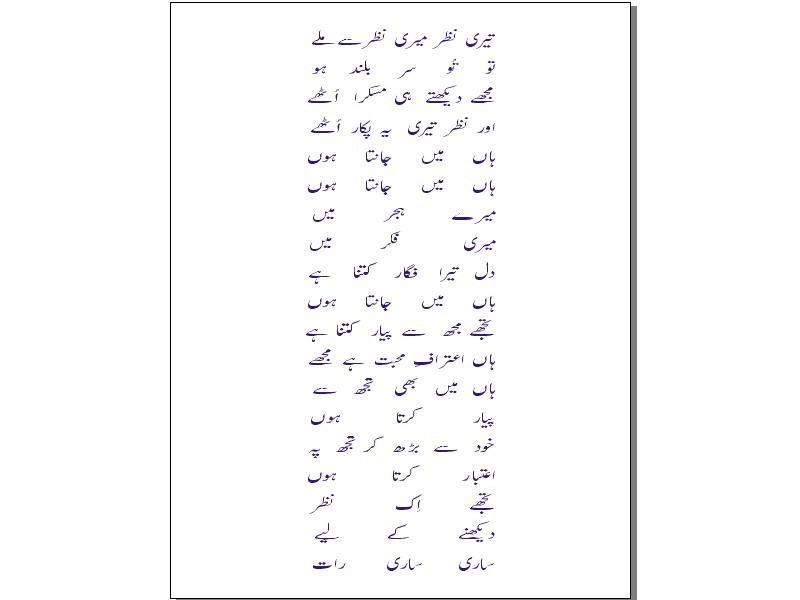 تیری نظر میری نظر سے ملے
تو تُو سر بلند ہو
مجھے دیکھتے ہی مسکرا اُٹھے
اور نظر تیری یہ پکار اُٹھے
ہاں میں جانتا ہوں
ہاں میں جانتا ہوں
میرے ہجر میں
میری فکر میں
دل تیرا فگار کتنا ہے
ہاں میں جانتا ہوں
تجھے مجھ سے پیار کتنا ہے
ہاں اعترافِ محبت ہے مجھے
ہاں میں بھی تجھ سے
پیار کرتا ہوں
خود سے بڑھ کر تجھ پہ
اعتبار کرتا ہوں
تجھے اِک نظر
دیکھنے کے لیے
ساری ساری رات